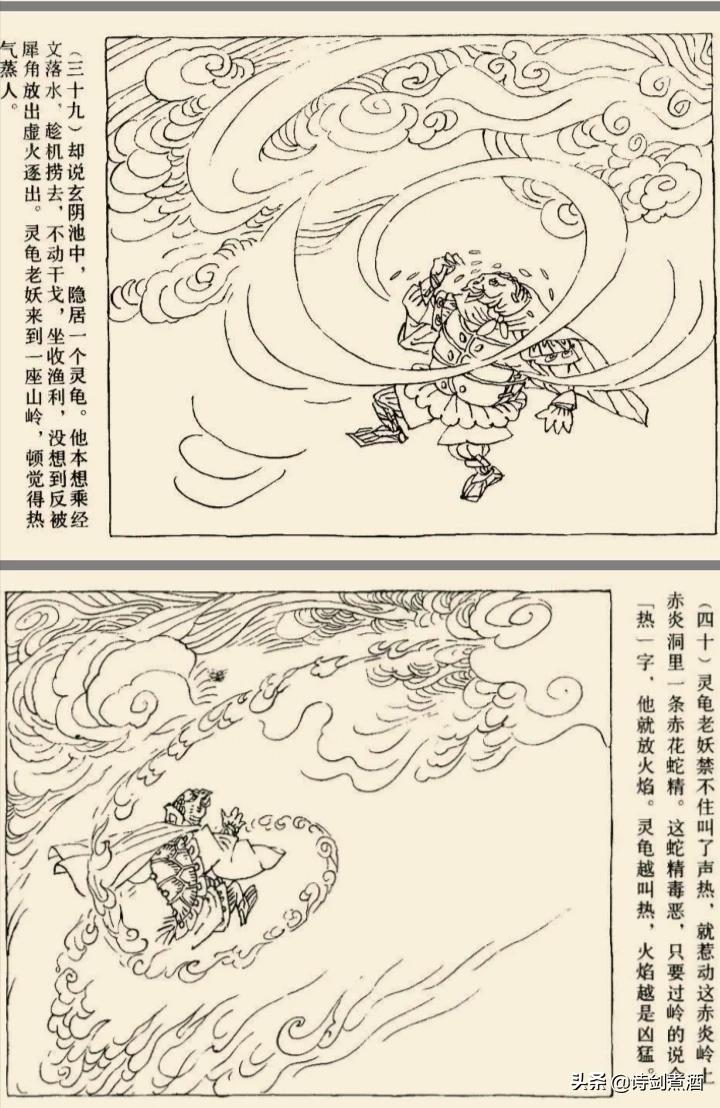 （三十九）却说玄阴池中，隐居一个灵龟。他本想乘经
文落水，趁机捞去，不动干戈，坐收渔利，没想到反被
犀角放出虚火逐出。灵龟老妖来到一座山岭，顿觉得热
气蒸人。
（四十）灵龟老妖禁不住叫了声热，就惹动这赤炎岭上
赤炎洞里一条赤花蛇精。这蛇精毒恶，只要过岭的说个
「热一字，他就放火焰。灵龟越叫热，火焰越是凶猛。
头条 @诗剑煮酒